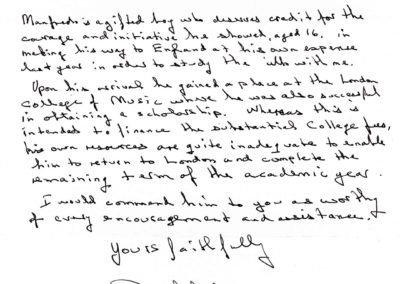 Manfredo is a gifted boy who deserves credit for the
courage and initiative he showed, aged 16, in
making his way to England at his own expense
last year in order to study the with me.
Upon his arrival he gained a place at the London
College of Music where he was also successful
in obtaining a scholarship. Whereas this is
intended to finance the substantial College fees,
his own resources are quite inadequate to enable
him to return to London and complete the
remaining term of the academic year.
I would commend him to you as worthy
of every encouragement and assistance.
Yours faithfully